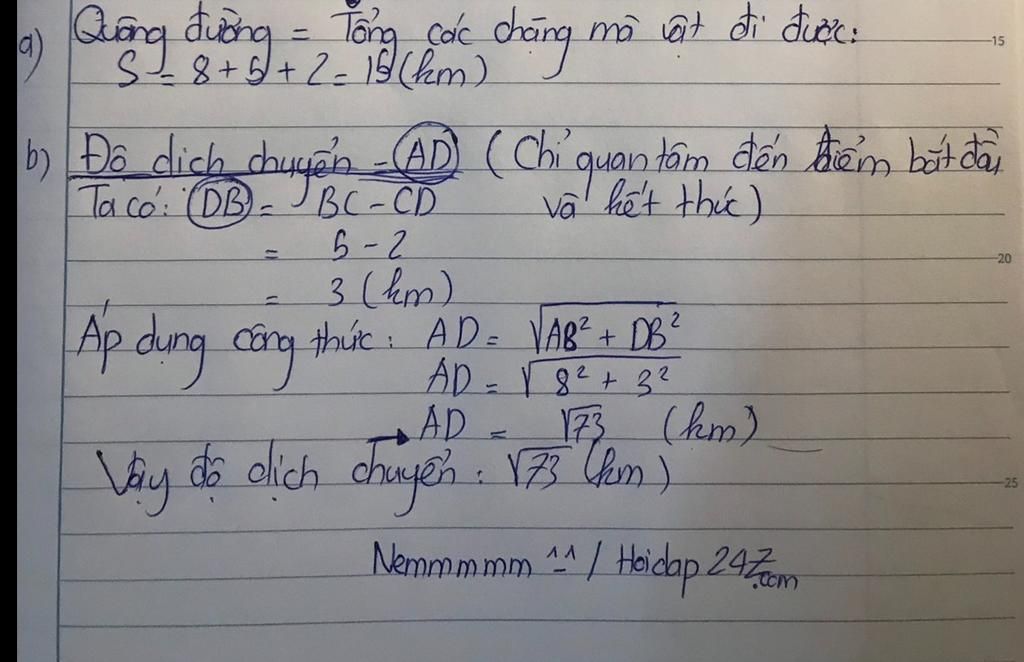 a) Quãng đường = Tổng các chặng mà vật đi được:
S = 8 + 5 + 2 = 15 (km)
b) Độ dịch chuyển = AD (Chỉ quan tâm đến điểm bắt đầu
và kết thúc)
Ta có: DB = BC - CD
= 5 - 2
= 3 (km)
Áp dụng công thức: AD = √AB² + DB²
AD = √8² + 3²
→ AD = √73 (km)
Vậy độ dịch chuyển: √73 (km)
Nemmmmm ^^ / Hoidap 247.com
15
20
25